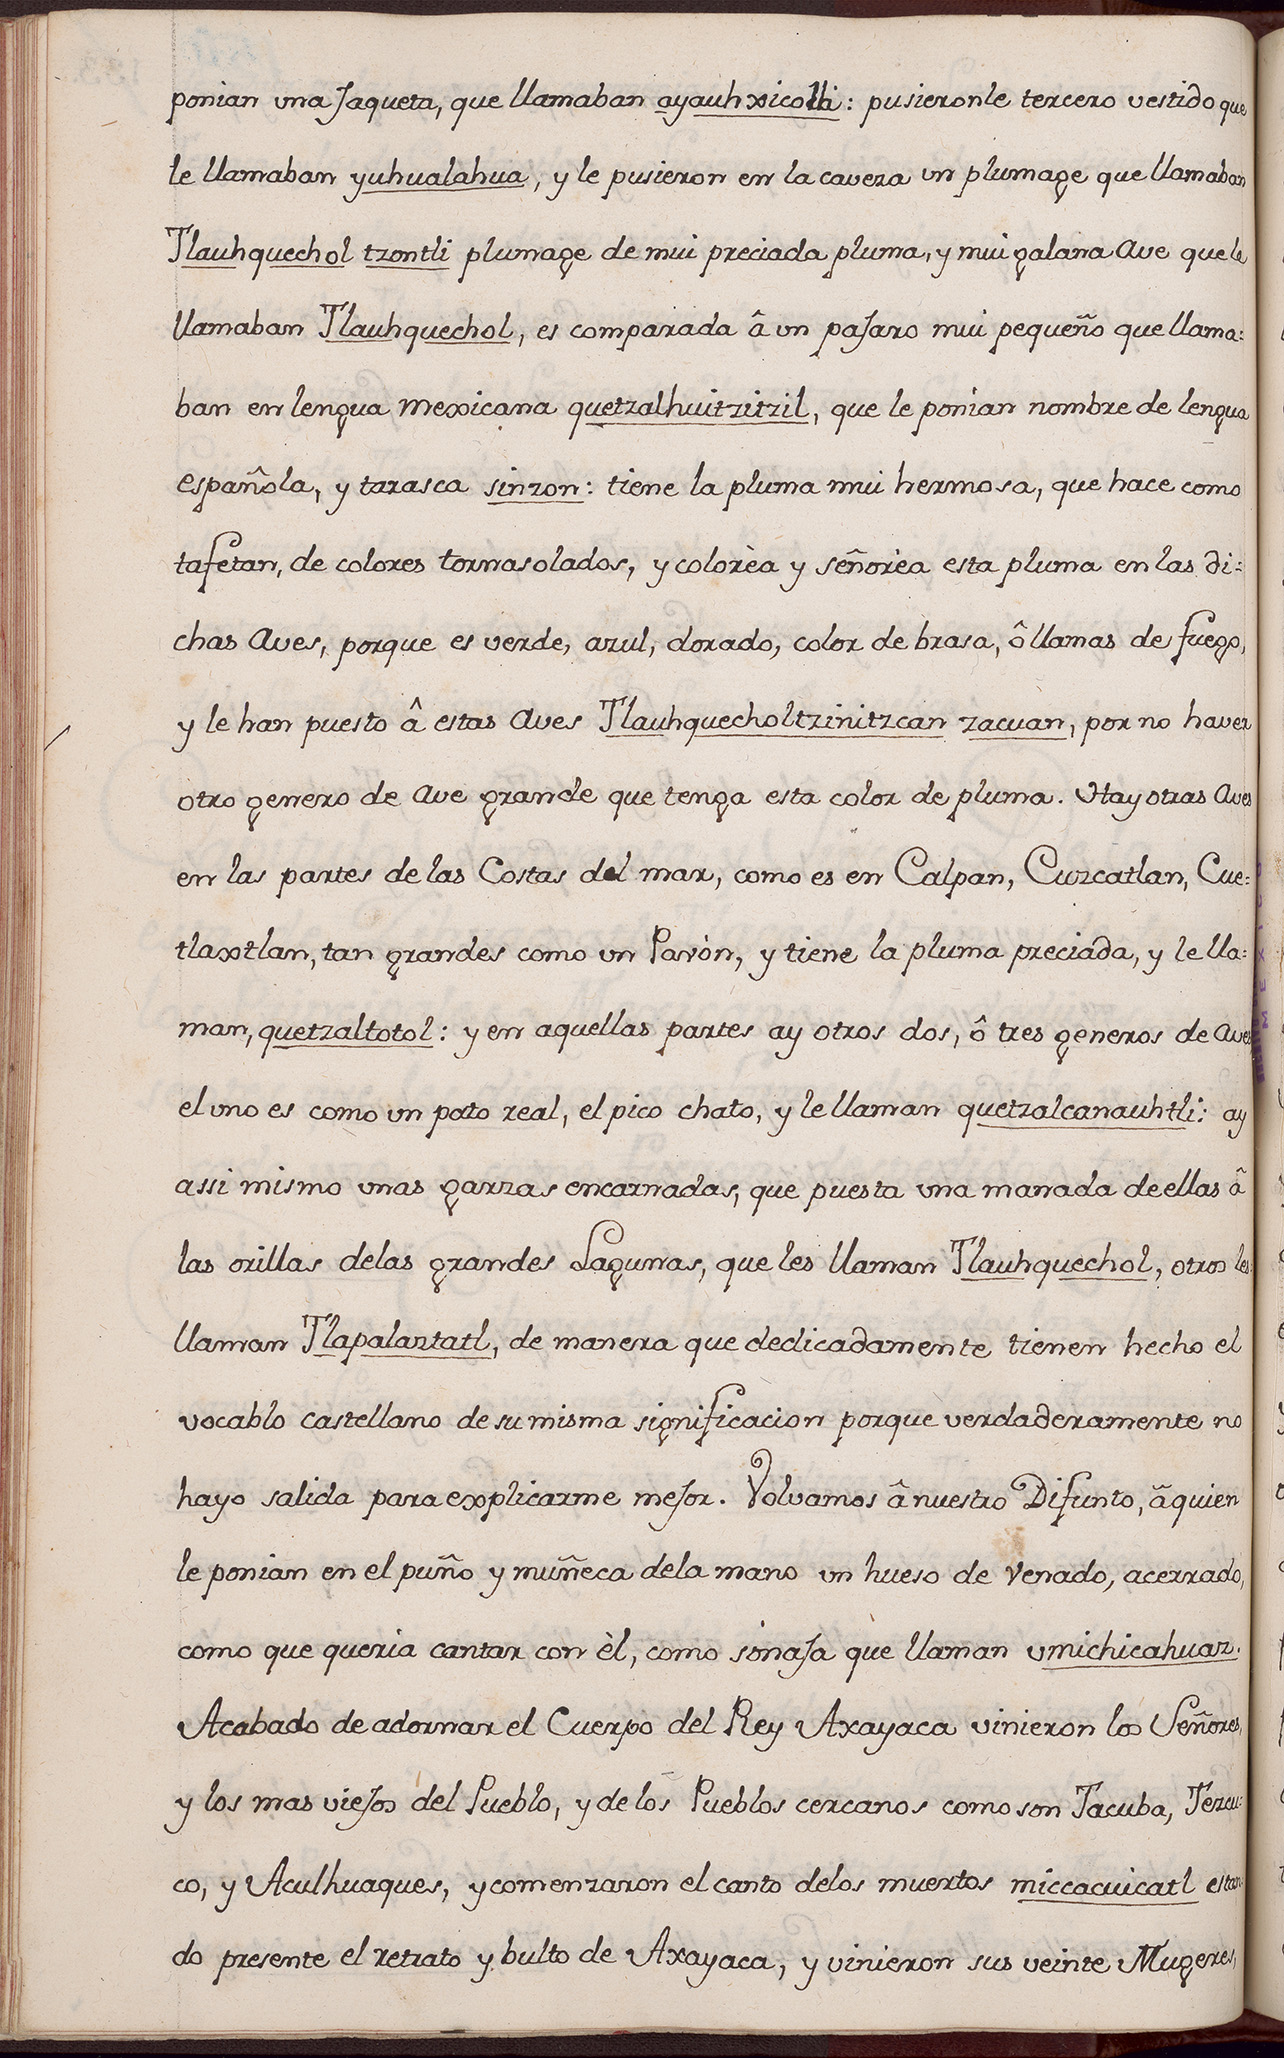 ponian vna Jaqueta, que llamaban ayauhxicolli: pusieronle tercero vestido que
le llamaban yuhualahua, y le pusieron en la caveza un plumage que llamaban
Tlauhquechol tzontli plumage de mui preciada pluma, y mui galana Ave que le
llamaban Tlauhquechol, es comparada â un paJaro mui pequeño que llama:
ban en lengua mexicana quetzalhuitzitzil, que le ponian nombre de lengua
española, y tarasca sinzon: tiene la pluma mui hermosa, que hace como
tafetan, de colores tornasolados, y colorèa y señorèa esta pluma en las di:
chas Aves, porque es verde, azul, dorado, color de brasa, ô llamas de fuego,
y le han puesto â estas Aves Tlauhquecholtzinitzcan zacuan, por no haver
otro genero de Ave grande que tenga esta color de pluma. Hay otras Aves
en las partes de las Costas del mar, como es en Calpan, Cuzcatlan, Cue:
tlaxtlan, tan grandes como un Pavòn, y tiene la pluma preciada, y le lla:
man, quetzaltotol: y en aquellas partes ay otros dos, ô tres generos de Aves
el vno es como un pato real, el pico chato, y le llaman quetzalcanauhtli: ay
assi mismo vnas garzas encarnadas, que puesta vna manada de ellas â
las orillas delas grandes Lagunas, que les llaman Tlauhquechol, otros les
llaman Tlapalaztatl, de manera que dedicadamente tienen hecho el
vocablo castellano de su misma significacion porque verdaderamente no
hayo salida para explicarme meJor. Volvamos â nuestro Difunto, â quien
le ponian en el puño y muñeca dela mano un hueso de Venado, acerrado,
como que queria cantar con èl, como sonaJa que llaman vmichicahuaz.
Acabado de adornar el Cuerpo del Rey Axayaca vinieron los Señores,
y los mas vieJos del Pueblo, y de los Pueblos cercanos como son Tacuba, Tezcu:
co, y Aculhuaques, y comenzaron el canto delos muertos miccacuicatl estan
do presente el retrato y bulto de Axayaca, y vinieron sus veinte Mugeres,